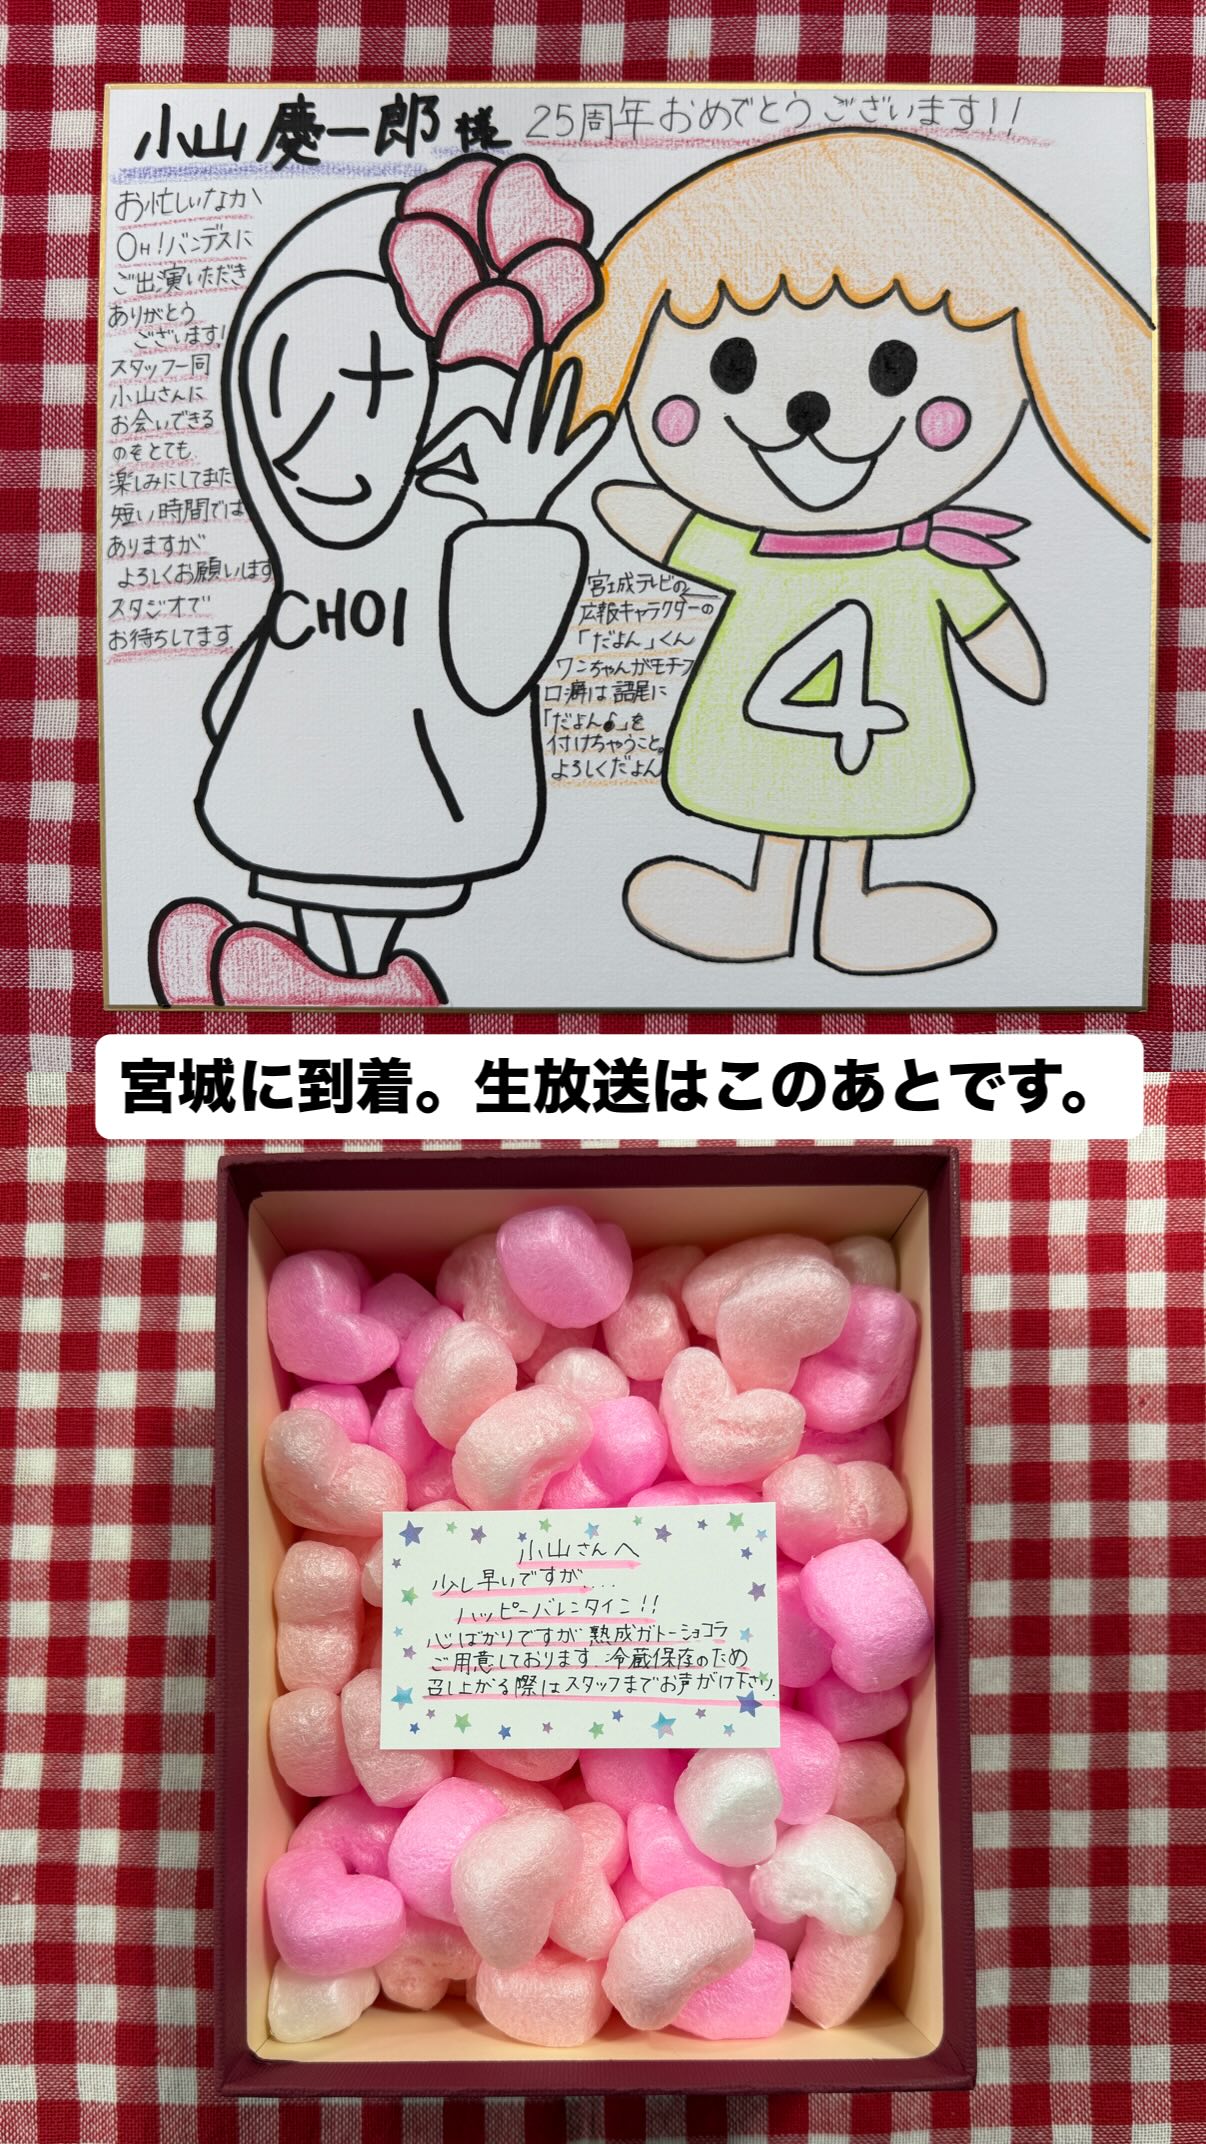 小山慶一郎様 25周年おめでとうございます!!
お忙しいなか
OH!バンデスに
ご出演いただき
ありがとう
ございます!
スタッフ一同
小山さんに
お会いできる
のをとても
楽しみにしてます
短い時間では
ありますが
よろしくお願いします
スタジオで
お待ちしてます
CHOI
宮城テレビの
広報キャラクターの
「だよん」くん
ワンちゃんがモチーフ
口癖は語尾に
「だよん♪」を
付けちゃうこと。
よろしくだよん
4
宮城に到着。生放送はこのあとです。
小山さんへ
少し早いですが....
ハッピーバレンタイン!!
心ばかりですが熟成ガトーショコラ
ご用意しております。冷蔵保存のため
召し上がる際はスタッフまでお声がけ下さい。